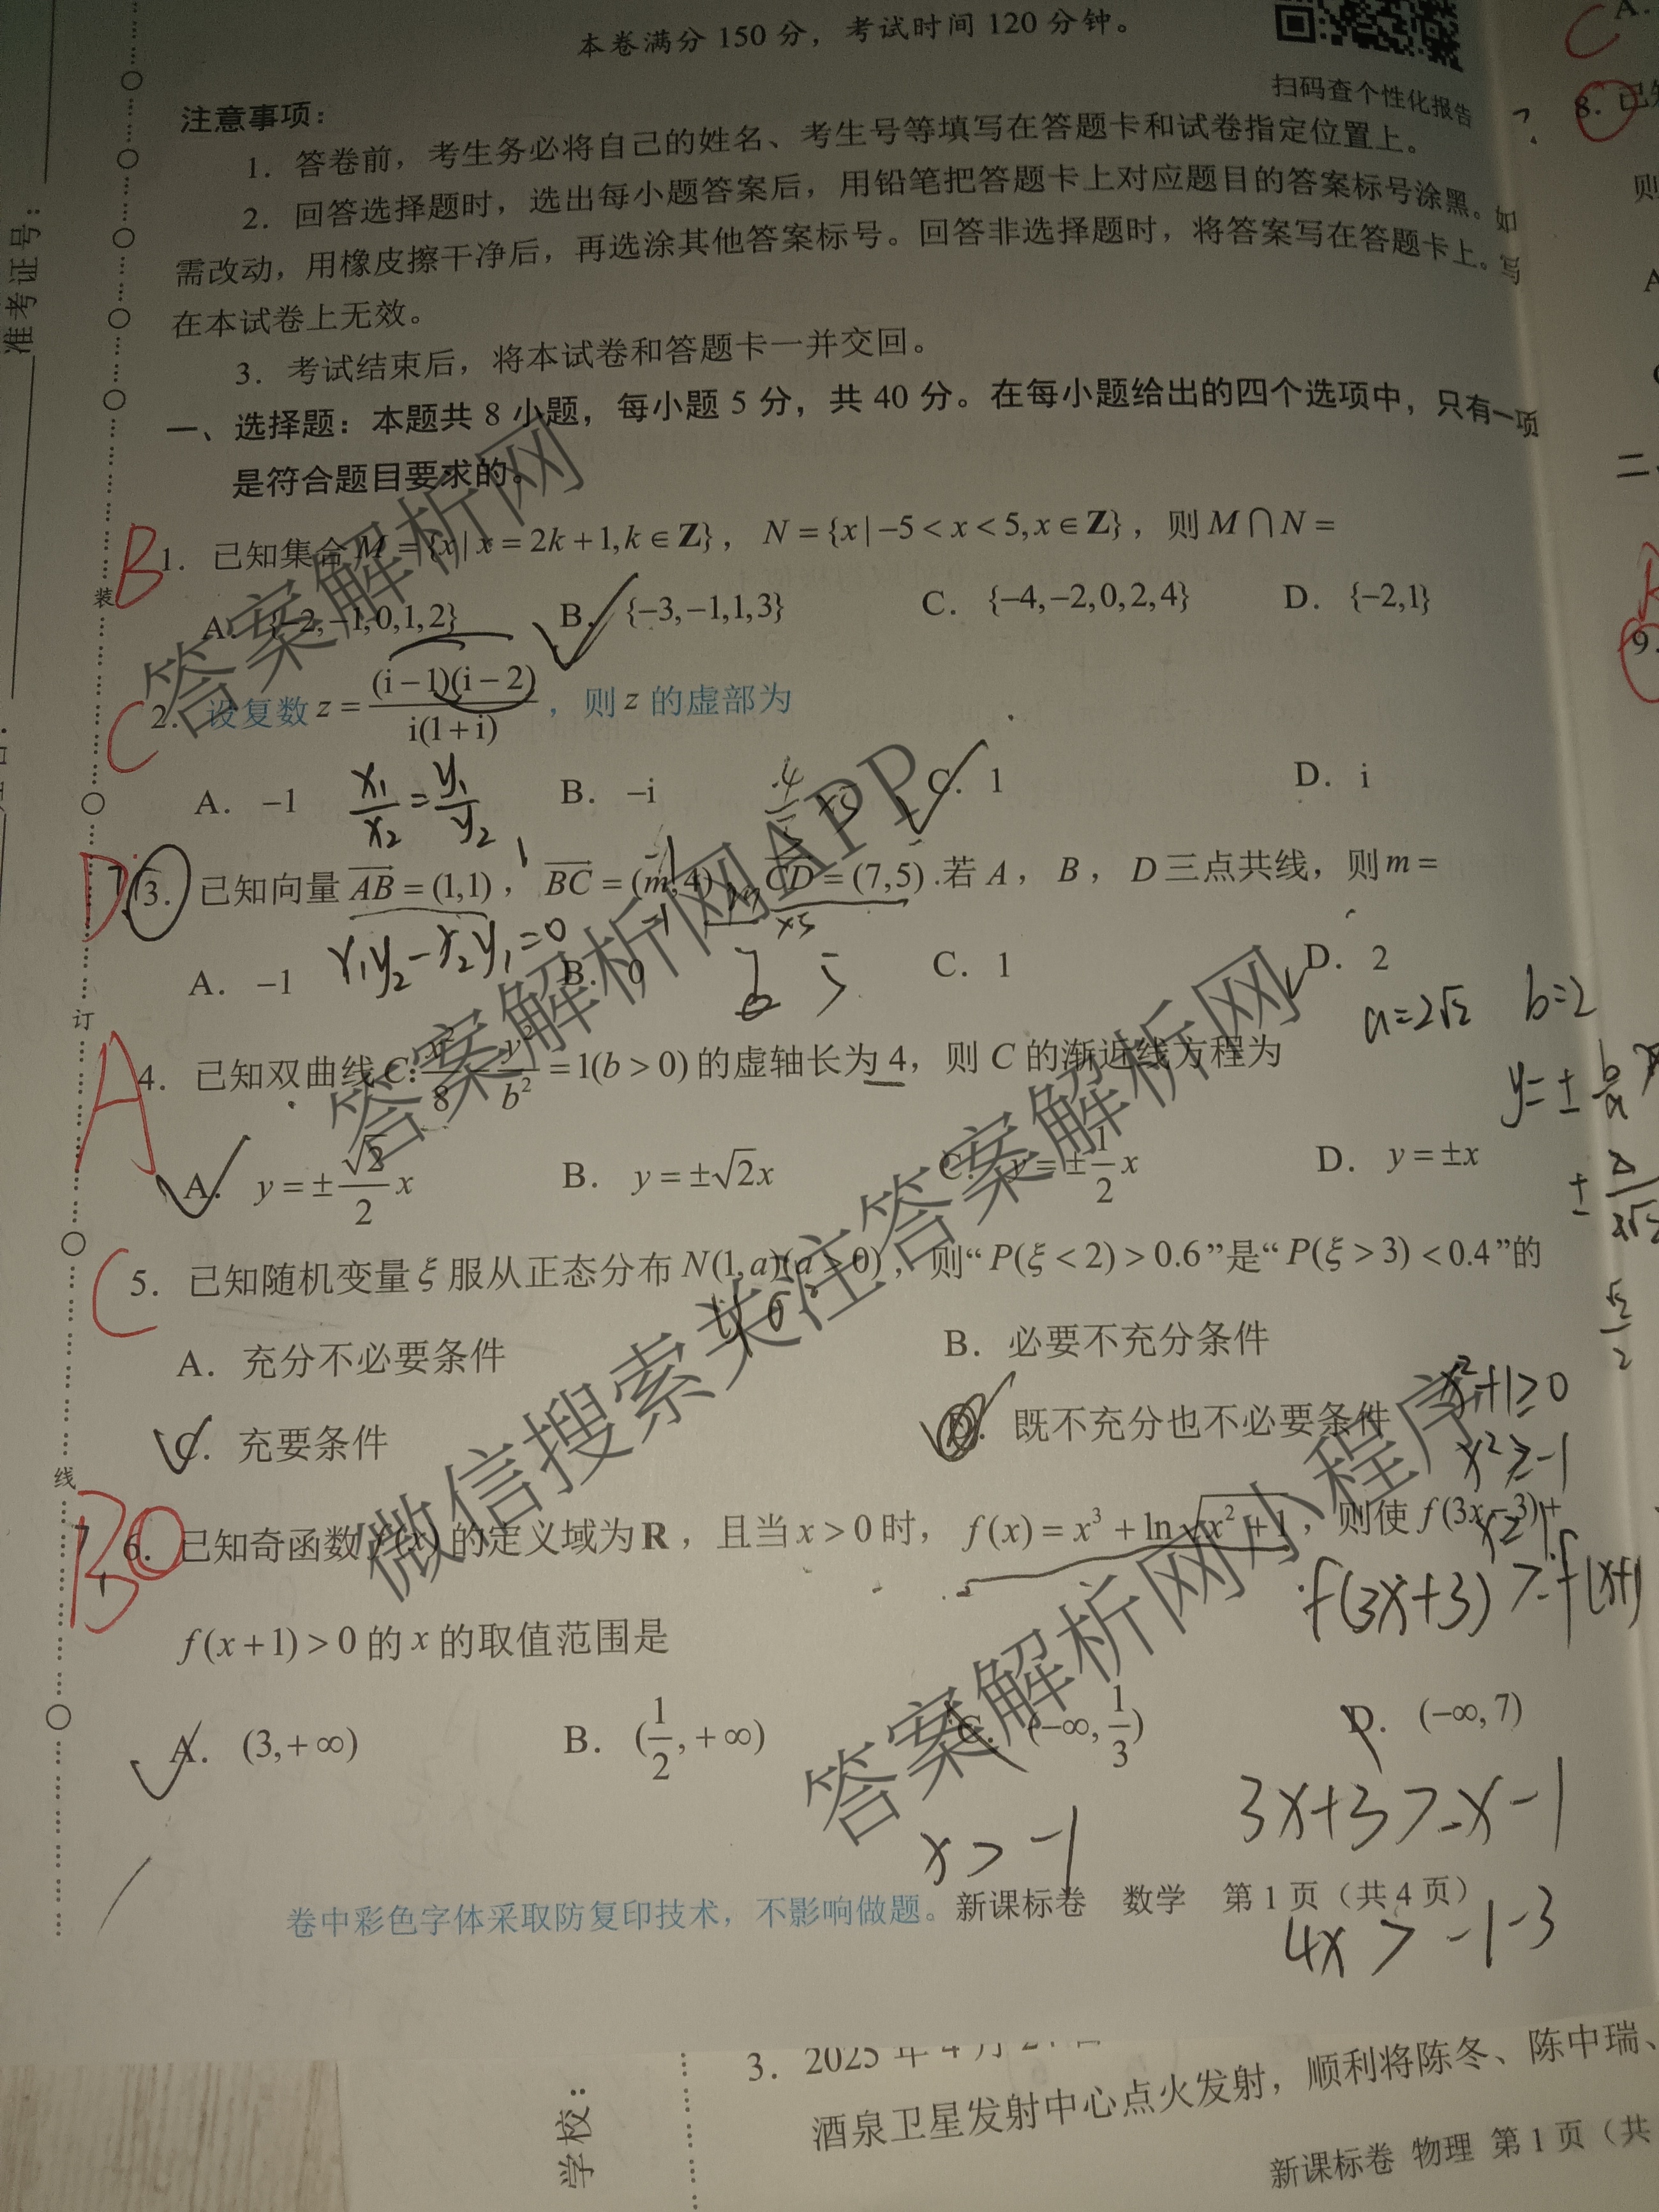 本卷满分 150 分，考试时间 120 分钟。
扫码查个性化报告
注意事项：
1．答卷前，考生务必将自己的姓名、考生号等填写在答题卡和试卷指定位置上。
2．回答选择题时，选出每小题答案后，用铅笔把答题卡上对应题目的答案标号涂黑。如
需改动，用橡皮擦干净后，再选涂其他答案标号。回答非选择题时，将答案写在答题卡上。写
在本试卷上无效。
3．考试结束后，将本试卷和答题卡一并交回。
一、选择题：本题共 8 小题，每小题 5 分，共 40 分。在每小题给出的四个选项中，只有一项
是符合题目要求的。
B 1．已知集合 M = {x | x = 2k + 1, k ∈ Z}，N = {x | −5 < x < 5, x ∈ Z}，则 M ∩ N =
A．{−2,−1,0,1,2} B．{−3,−1,1,3} C．{−4,−2,0,2,4} D．{−2,1}
C 2．设复数 z = (i − 1)(i − 2) / i(1 + i)，则 z 的虚部为
A．−1 B．−i C．1 D．i
x₁/x₂ = y₁/y₂
D 3．已知向量 AB = (1,1)，BC = (m,4)，CD = (7,5).若 A，B，D 三点共线，则 m =
x₁y₂ − x₂y₁ = 0
A．−1 B．0 C．1 D．2
a=2√2 b=2
A 4．已知双曲线 C: x²/8 − y²/b² = 1(b > 0) 的虚轴长为 4，则 C 的渐近线方程为
y = ± b/a x
A．y = ± √2/2 x B．y = ±√2x C．y = ± 1/2 x D．y = ±x
√2/2
C 5．已知随机变量 ξ 服从正态分布 N(1,a)(a > 0)，则“P(ξ < 2) > 0.6”是“P(ξ > 3) < 0.4”的
A．充分不必要条件 B．必要不充分条件
C．充要条件 D．既不充分也不必要条件
x²+1≥0
x²≥−1
B 6．已知奇函数 f(x) 的定义域为 R，且当 x > 0 时，f(x) = x³ + ln √(x² + 1)，则使 f(3x − 3) +
f(3x+3) > −f(x+1)
f(x + 1) > 0 的 x 的取值范围是
A．(3, + ∞) B．(1/2, + ∞) C．(−∞, 1/3) D．(−∞, 7)
3x+3>−x−1
x > −1
4x > −1−3
卷中彩色字体采取防复印技术，不影响做题。新课标卷 数学 第 1 页（共 4 页）
准考证号：
装
订
线
8．已知
则
二、
9．
答案解析网
答案解析网APP
微信搜索关注答案解析网
答案解析网小程序
3．2025 年 4 月
酒泉卫星发射中心点火发射，顺利将陈冬、陈中瑞、
新课标卷 物理 第 1 页（共
学校：